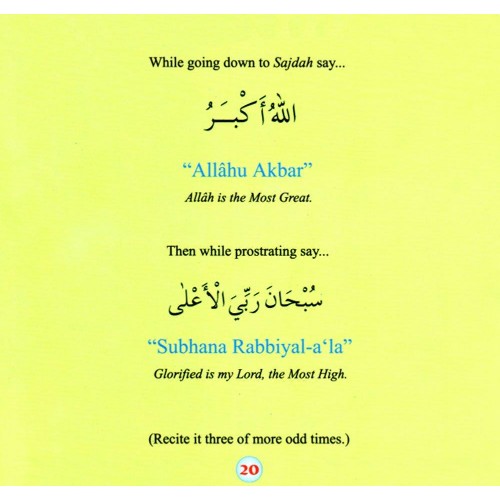 While going down to Sajdah say...
اللّٰهُ أَكْبَـــرُ
“Allâhu Akbar”
Allâh is the Most Great.
Then while prostrating say...
سُبْحَانَ رَبِّيَ الْأَعْلٰى
“Subhana Rabbiyal-a‘la”
Glorified is my Lord, the Most High.
(Recite it three of more odd times.)
20